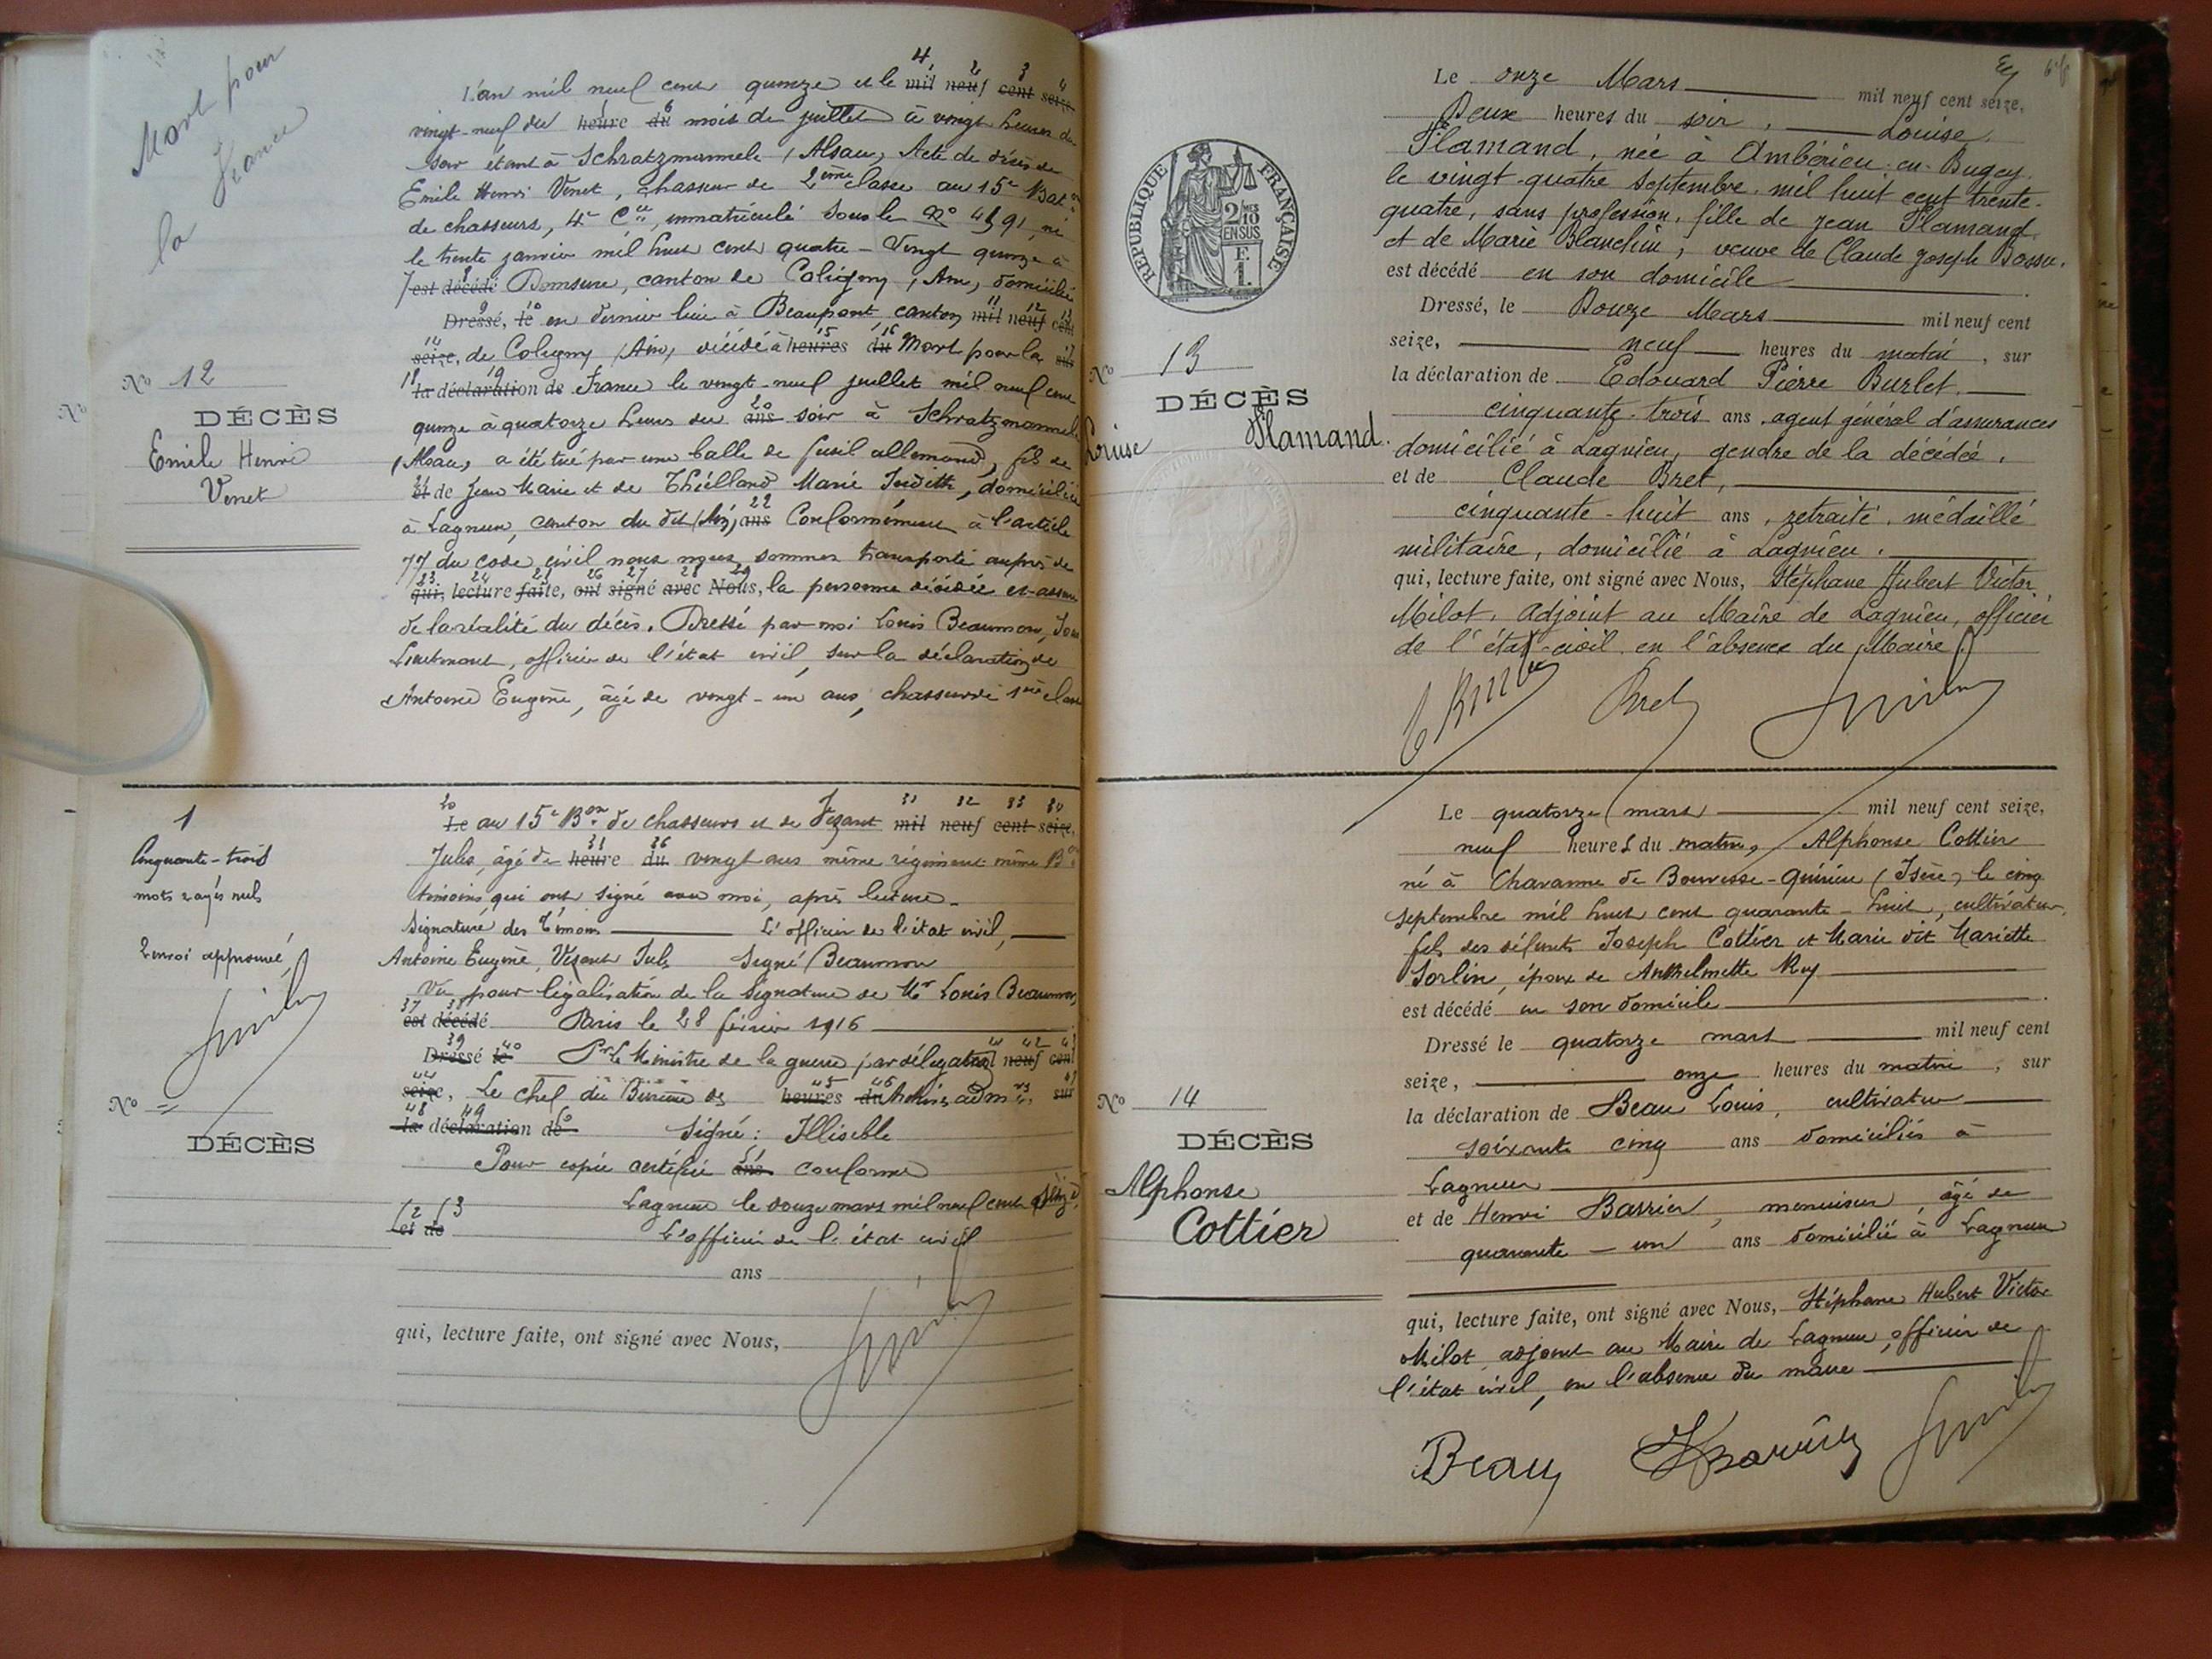 Mort pour
la France
L'an mil neuf cent quinze et le mil neuf cent seize
vingt-neuf du heure du mois de juillet à vingt heures du
soir étant à Schratzmannele (Alsace) Acte de décès de
Emile Henri Venet, chasseur de 2ème classe au 15e Baton
de chasseurs, 4e Cie, immatriculé sous le No 4891, né
le trente janvier mil huit cent quatre-vingt quinze à
est décédé Domsure, canton de Coligny (Ain) domicilié
Dressé, le en dernier lieu à Beaupont canton mil neuf cent
seize, de Coligny (Ain) décédé à heures du Mort pour la
la déclaration de France le vingt-neuf juillet mil neuf cent
quinze à quatorze heures du ans soir à Schratzmannele
(Alsace) a été tué par une balle de fusil allemand, fils de
et de Jean Marie et de Thielland Marie Judith, domiciliés
à Lagnieu, canton du dit (Ain) ans Conformément à l'article
77 du code civil nous nous sommes transporté auprès de
qui, lecture faite, ont signé avec Nous, la personne décédée et assuré
de la réalité du décès. Dressé par moi Louis Beaumon, Sous
Lieutenant, officier de l'état civil, sur la déclaration de
Antoine Eugène, âgé de vingt-un ans, chasseur de 1ère classe
No 12
DÉCÈS
Emile Henri
Venet
1
Cinquante-trois
mots rayés nuls
Renvoi approuvé
No =
DÉCÈS
Le au 15e Bon de chasseurs et de Vezant mil neuf cent seize,
Jules, âgé de heure du vingt ans même régiment même Bon
témoins qui ont signé avec moi, après lecture
Signature des Témoins L'officier de l'état civil,
Antoine Eugène, Vezant Jules Signé Beaumon
Vu pour légalisation de la signature de Mr Louis Beaumon,
est décédé Paris le 28 février 1916
Dressé le Pr le Ministre de la guerre par délégation neuf cent
seize, Le chef du Bureau des heures du admves, sur
la déclaration de Signé: Illisible
Pour copie certifiée ans conforme
Lagnieu le douze mars mil neuf cent seize
et de L'officier de l'état civil
ans
qui, lecture faite, ont signé avec Nous,
RÉPUBLIQUE FRANÇAISE
2/10 EN SUS
F. 1.
No 13
DÉCÈS
Louise Flamand.
Le onze Mars mil neuf cent seize,
Deux heures du soir, Louise
Flamand, née à Ambérieu-en-Bugey,
le vingt-quatre septembre mil huit cent trente-
quatre, sans profession, fille de Jean Flamand
et de Marie Blanchin, veuve de Claude Joseph Bossu,
est décédé en son domicile
Dressé, le Douze Mars mil neuf cent
seize, neuf heures du matin, sur
la déclaration de Edouard Pierre Burlet,
cinquante-trois ans, agent général d'assurances
domicilié à Lagnieu, gendre de la décédée,
et de Claude Bret,
cinquante-huit ans, retraité, médaillé
militaire, domicilié à Lagnieu.
qui, lecture faite, ont signé avec Nous, Stéphane Hubert Victor
Milot, Adjoint au Maire de Lagnieu, officier
de l'état-civil en l'absence du Maire.
Bret
No 14
DÉCÈS
Alphonse
Cottier
Le quatorze mars mil neuf cent seize,
neuf heures du matin, Alphonse Cottier
né à Charanne de Bouvesse-Quirieu (Isère) le cinq
septembre mil huit cent quarante-huit, cultivateur,
fils des défunts Joseph Cottier et Marie dit Mariette
Sorlin, époux de Anthelmette Rey
est décédé en son domicile
Dressé le quatorze mars mil neuf cent
seize, onze heures du matin, sur
la déclaration de Beau Louis, cultivateur
soixante cinq ans domiciliés à
Lagnieu
et de Henri Barrier, menuisier, âgé de
quarante-un ans domicilié à Lagnieu
qui, lecture faite, ont signé avec Nous, Stéphane Hubert Victor
Milot adjoint au Maire de Lagnieu, officier de
l'état civil, en l'absence du maire
Beau